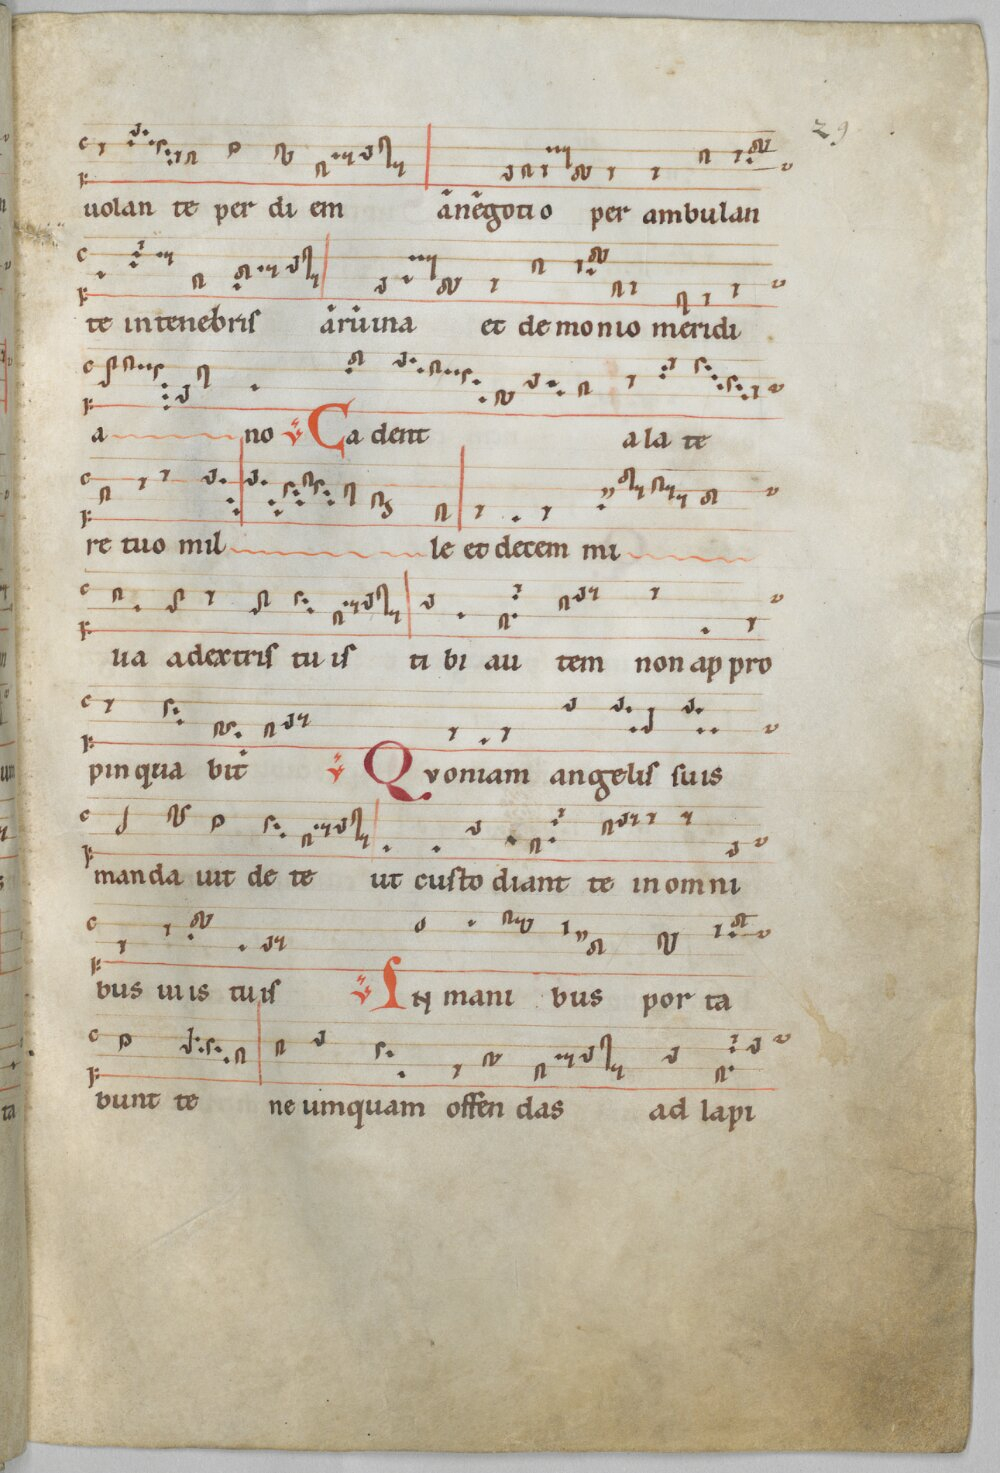 29
uolan te per di em a negotio per ambulan
te in tenebris a ruina et de monio meridi
a no ℣ Ca dent a la te
re tuo mil le et decem mi
lia a dextris tu is ti bi au tem non ap pro
pin qua bit ℣ Quoniam angelis suis
man da uit de te ut custo diant te in om ni
bus uiis tuis ℣ In mani bus por ta
bunt te ne umquam offen das ad lapi